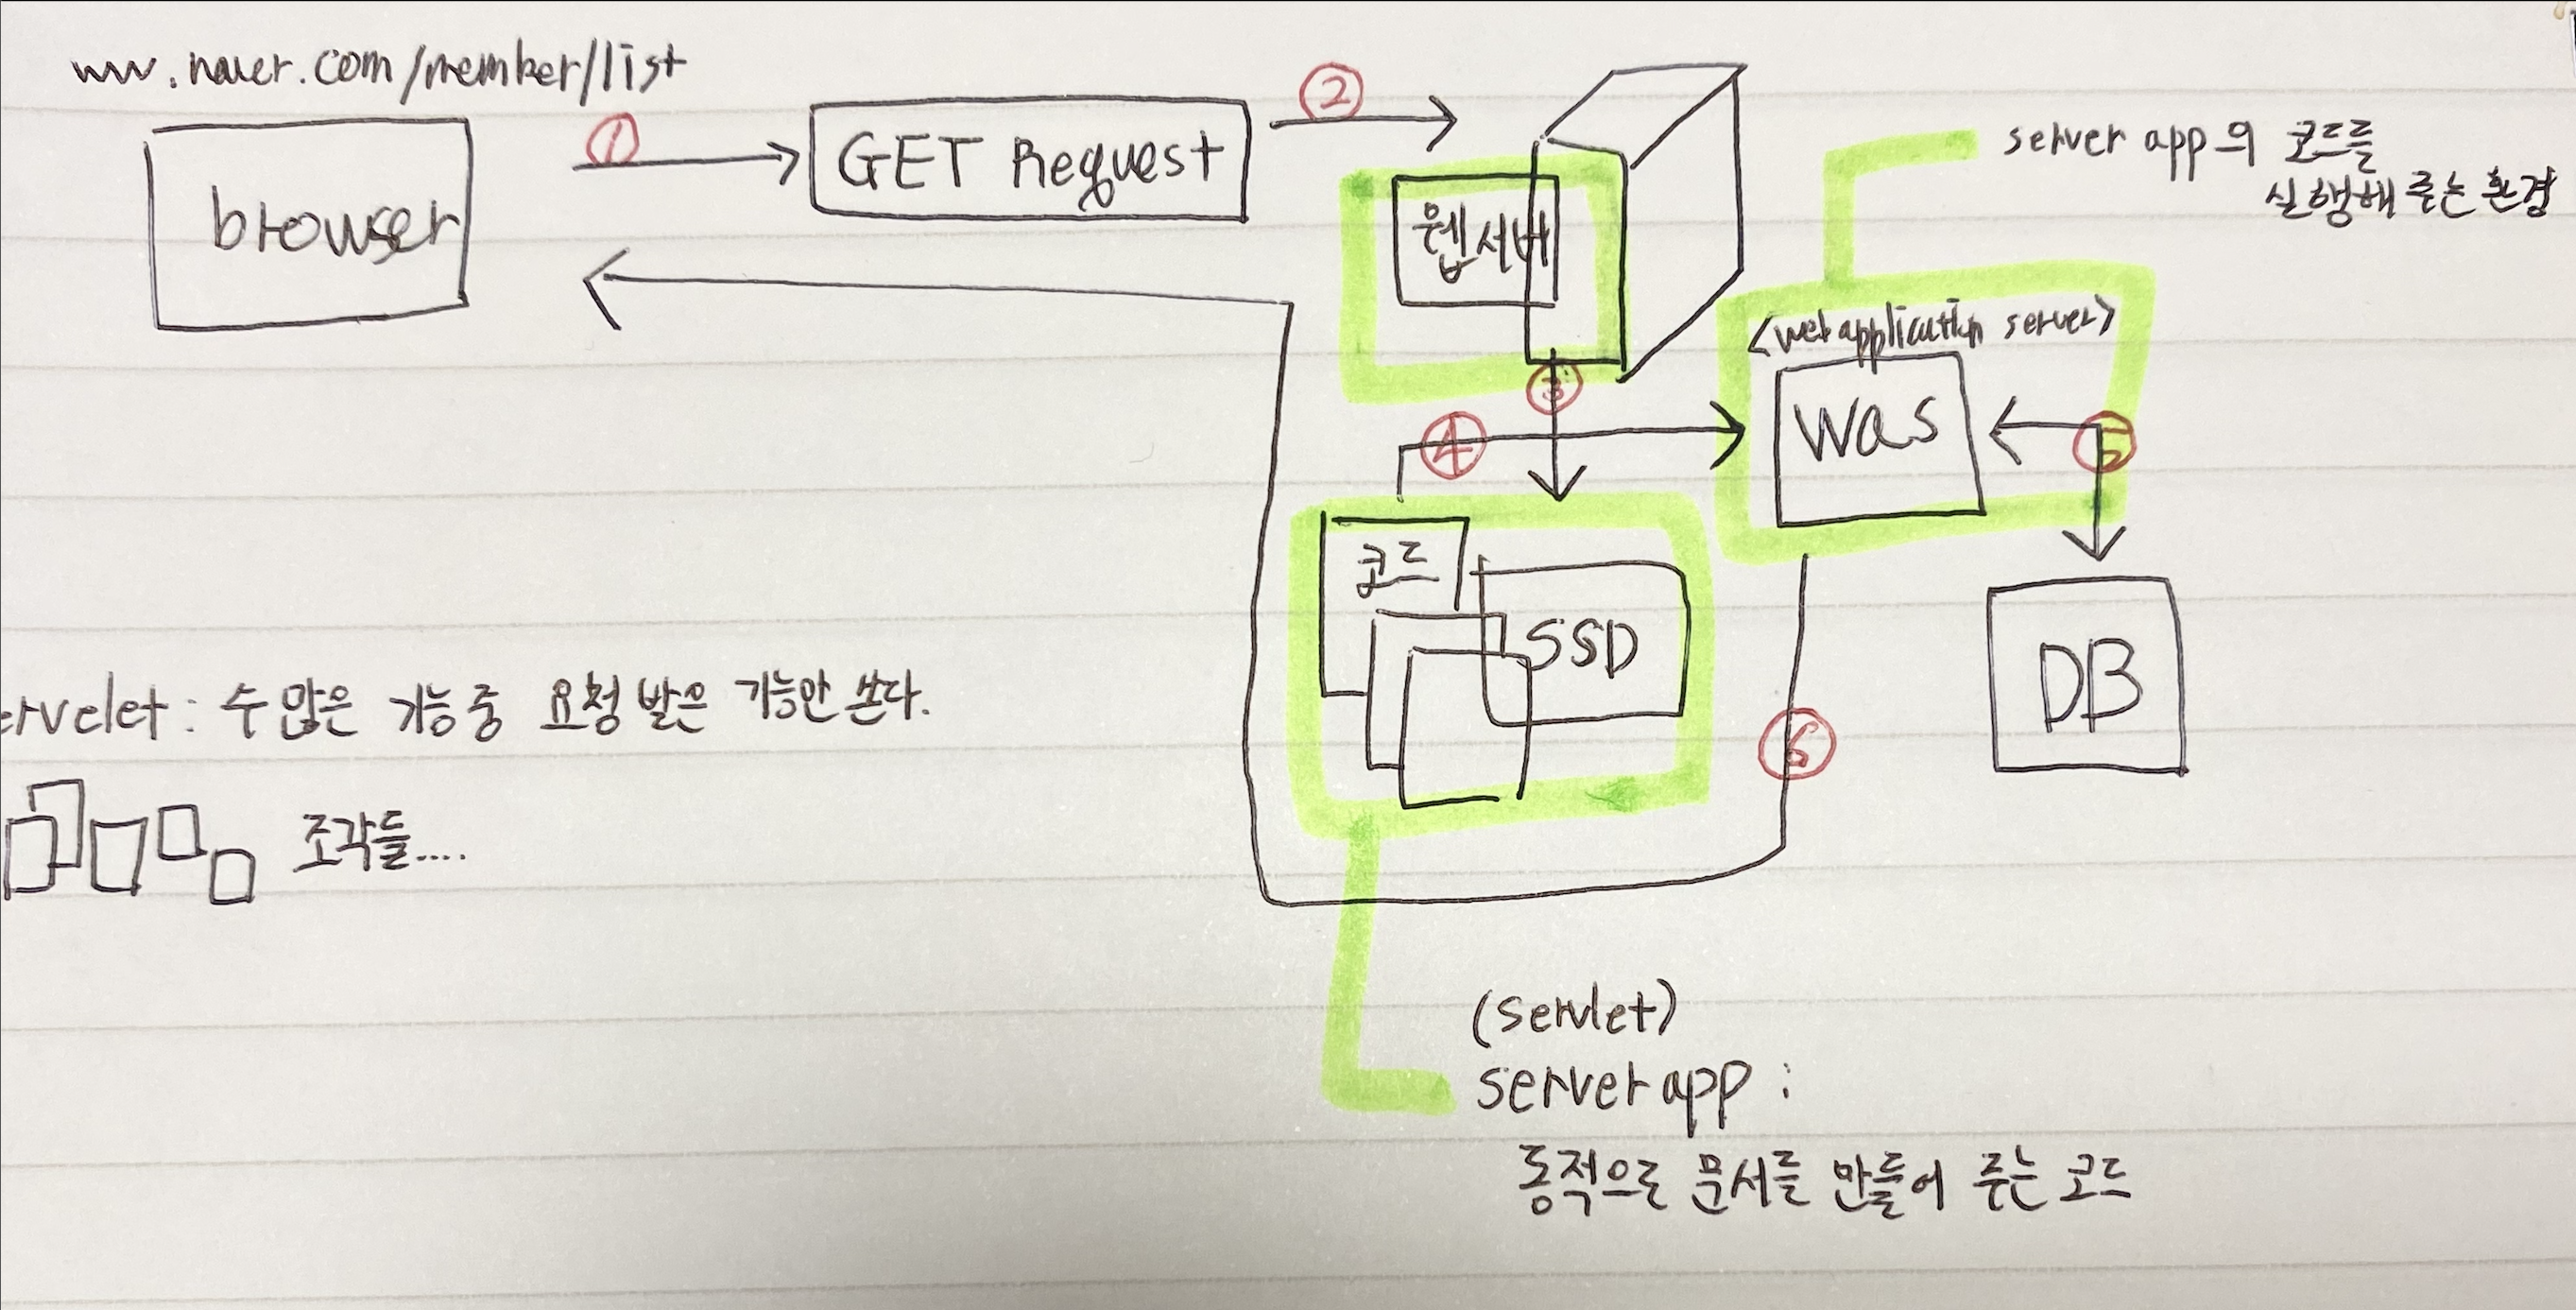 www.naver.com/member/list
①
GET Request
②
browser
웹서버
server app의 코드를
실행해 주는 환경
<web application server>
③
④
was
⑤
코드
SSD
DB
ervelet : 수많은 기능 중 요청 받은 기능만 쓴다.
⑥
조각들....
(servlet)
server app :
동적으로 문서를 만들어 주는 코드